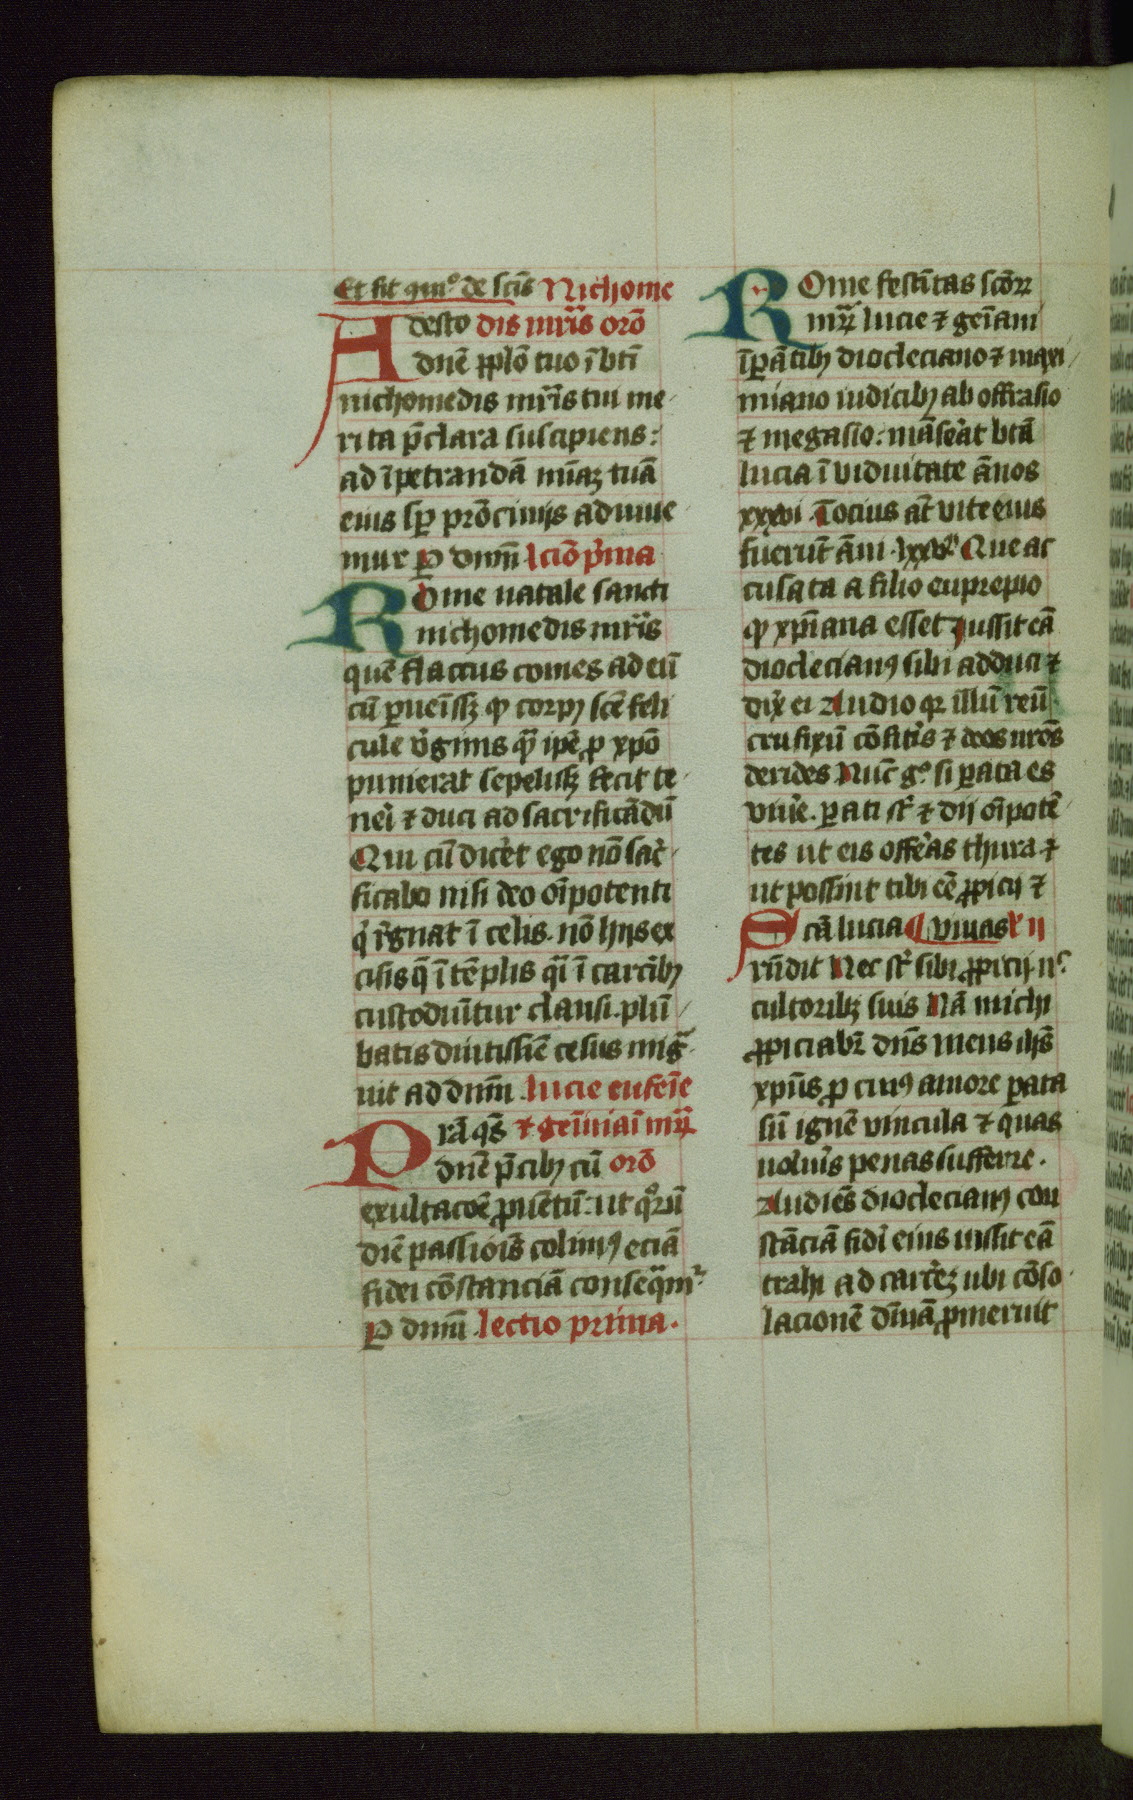 Et fit qm̅º de sctīs Nichome
Adesto dis mr̄is orō
dnē pplo tuo ī btī
nichomedis mr̄is tui me
rita p̄clara suscipiens:
ad īpetrandā mīaꝫ tuā
eius sꝑ
mur ꝑ dnm̄ lcīo pͥma
Rome natale sancti
nichomedis mr̄is
quē flaccus comes ad eū
cū ꝑuenīssꝫ qꝫ corpꝰ scē feli
cule vͥginis qͣ ipē ꝓ xpō
punierat sepelissꝫ fecit te
neri ⁊ duci ad sacrificādū
Qui cū dic̄et ego nō sacͥ
ficabo nisi deo oīpotenti
qͥ rͤgnat ī celis. nō hijs ex
cisis q̄ ī tēplis qͣi ī carcͤibꝫ
custodiūtur clausi. plū
batis diutissiē cesus migͣ
uit ad dnm̄ lucie eufeīe
Pr̄a qs̄ ⁊ geīniaī mr̄ꝝ
dnē p̄cibꝫ cū orō
exultacōē ꝓuētū: ut qͦrū
diē passioīs colimꝰ eciā
fidei cōstanciā conseqͣmͬ
ꝑ dnm̄ lectio prima.
Rome festīitas scōrꝝ
mr̄ꝝ lucie ⁊ geīani
īꝑātibꝫ diocleciano ⁊ maxi
miano iudicibꝫ ab offrasio
⁊ megasio: māserat btā
lucia ī viduitate ānos
xxxvi Tocius at̄ vite eius
fuerūt āni lxxvͦ Que ac
cusata a filio euprepio
qꝫ xp̄iana esset Jussit eā
dioclecianꝰ sibi adduci ⁊
dix̄ ei Audio qꝛ illū reū
crufixū cōfitͤis ⁊ deos nr̄os
derides Nūc gͦ si ꝑata es
viuͤe. ꝑati st̄ ⁊ dij oīpotē
tes ut eis offͤas thura ⁊
ut possint tibi eē ꝓpicij ⁊
Scā lucia viuas rͤ ij
rn̄dit Nec st̄ sibi ꝓpicij nͨ
cultoribꝫ suis Nā michi
ꝓpiciabr̄ dn̄s meus ihs̄
xpūs ꝓ cuiꝰ amore ꝑata
sū ignē vincula ⁊ quas
volūis penas sufferre.
Audiēs dioclecianꝰ con
stāciā fidei eius iussit eā
trahi ad carcͤeꝫ ubi cōso
lacionē dīuīā ꝓmeruit